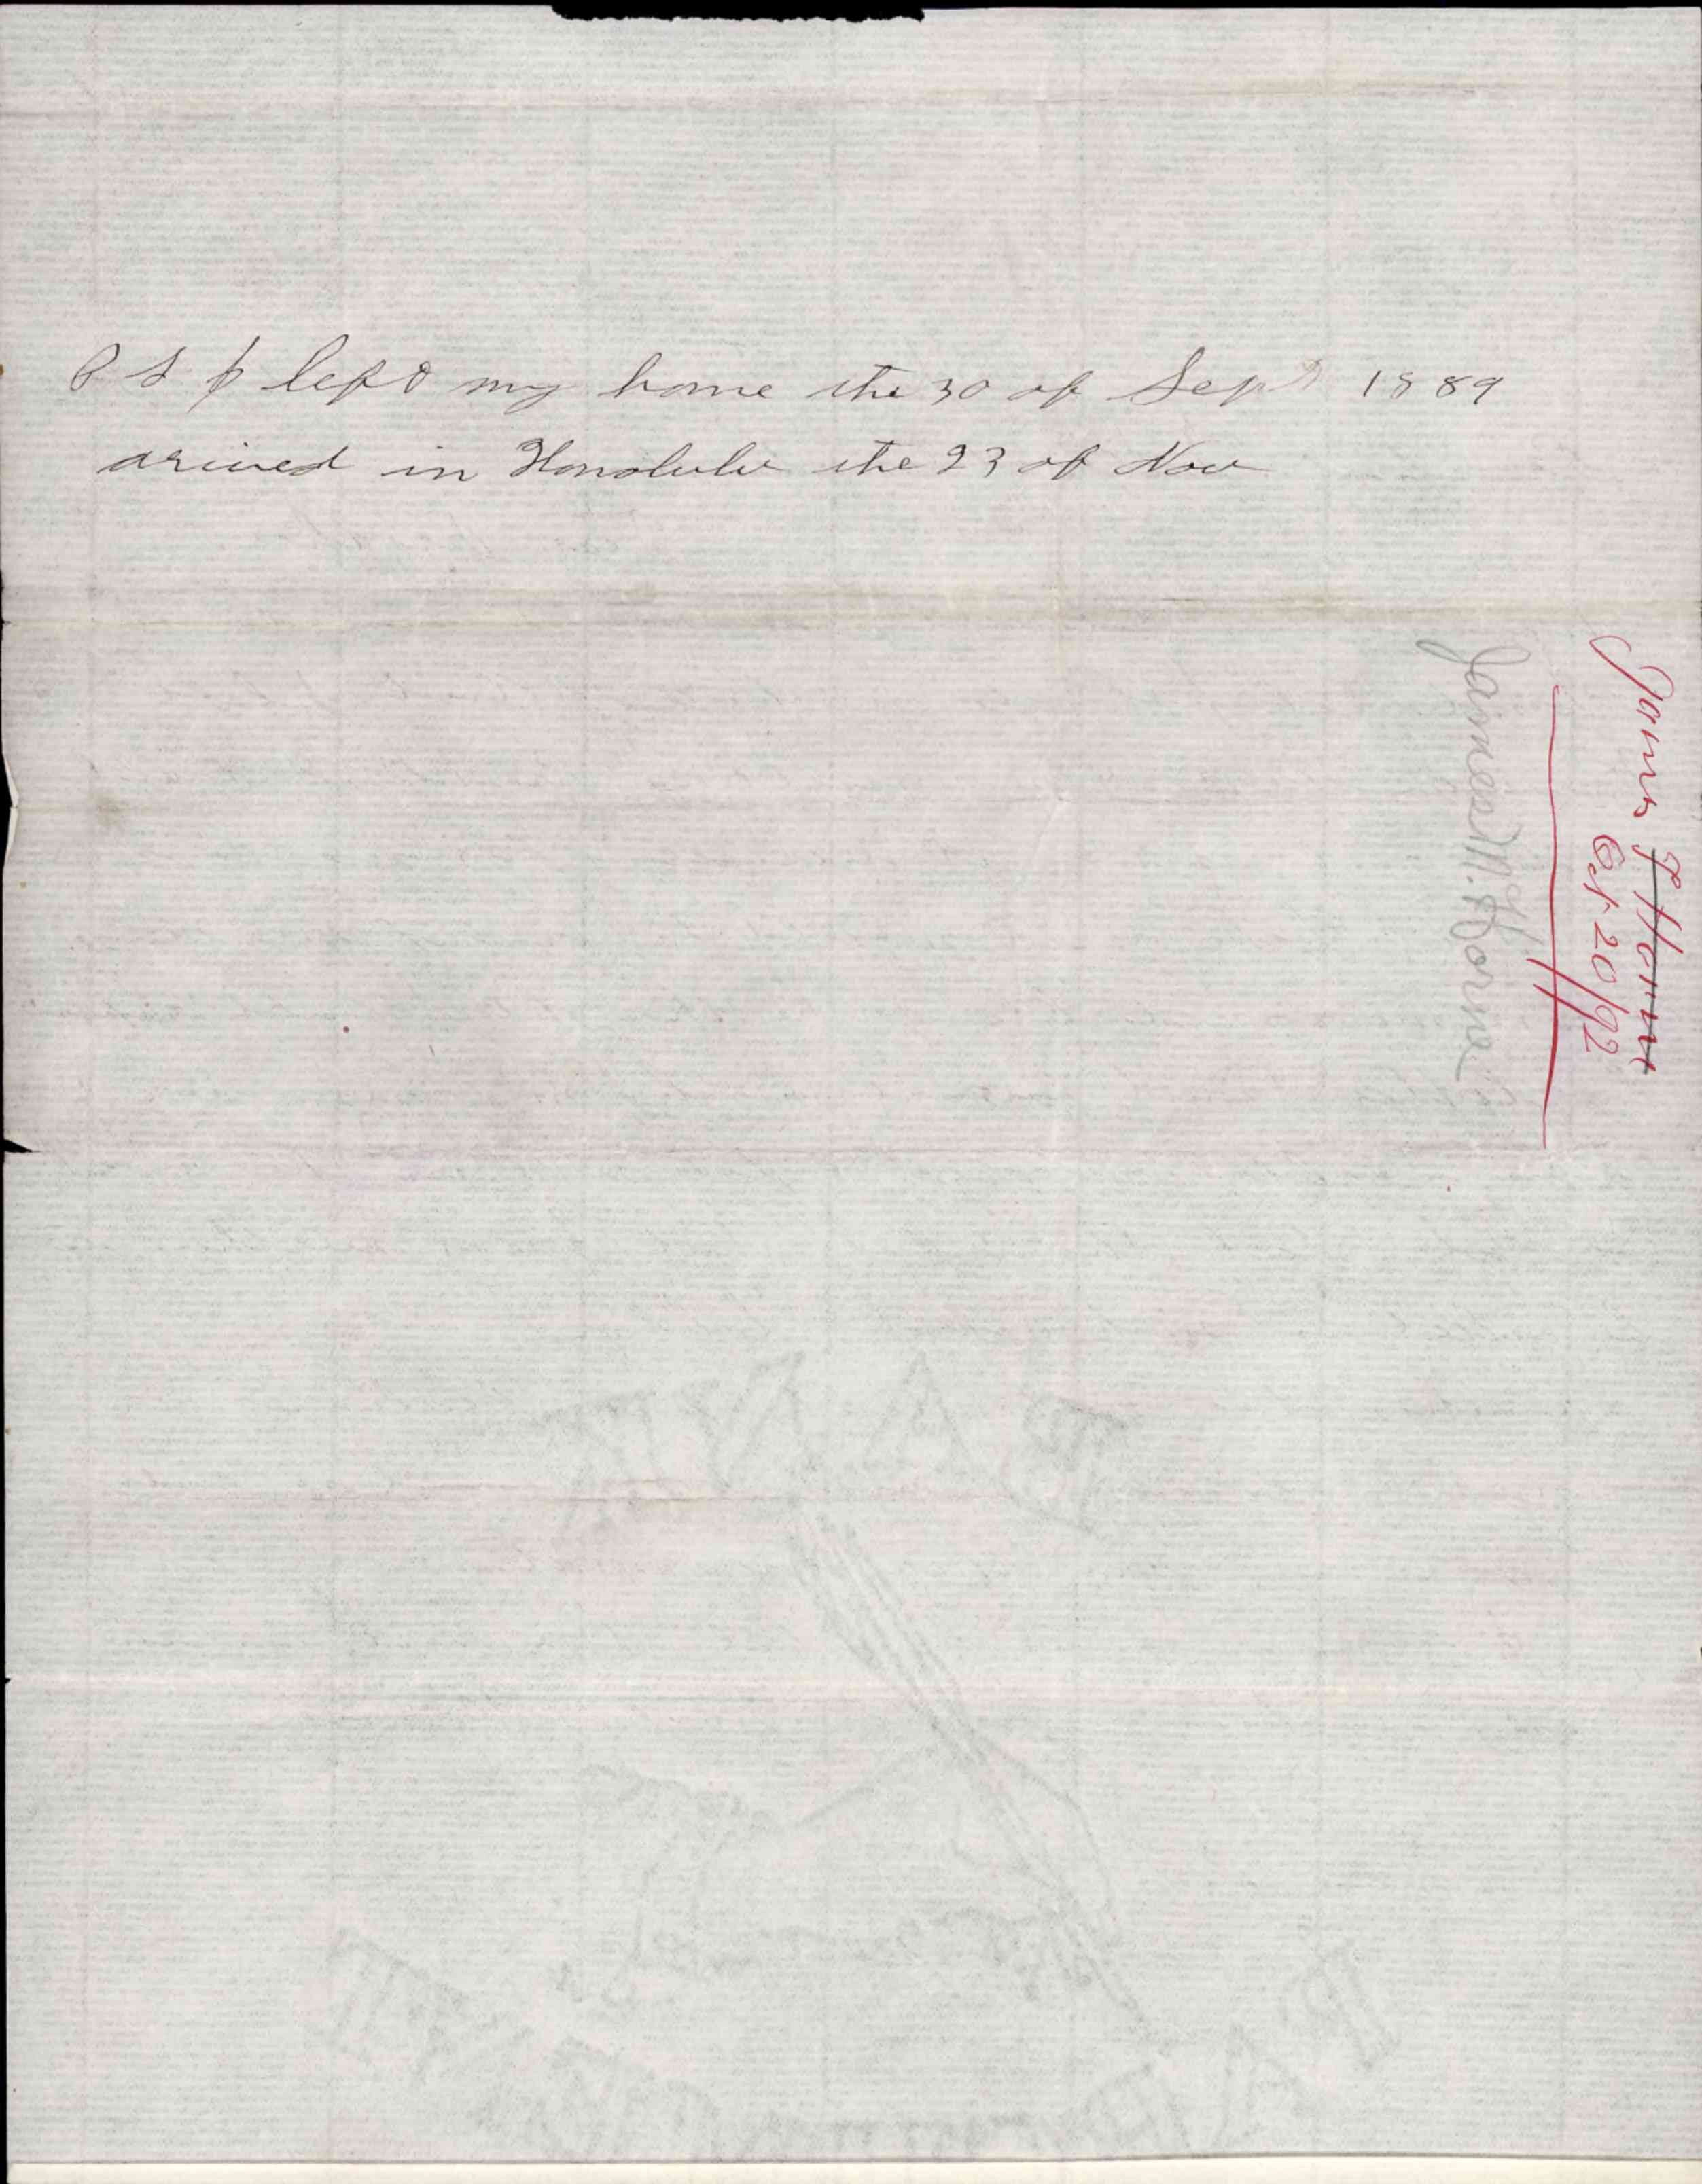 P S I left my home the 30 of Sept 1889
arived in Honolulu the 23 of Nov
James F Horne
Oct 20/92
James M. Horne
BANK
PARCHMENT